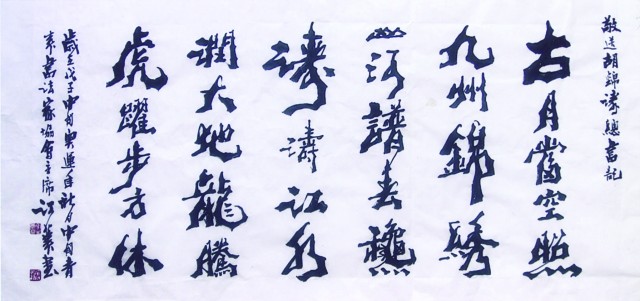 敬送胡錦濤總書記
古月當空照
九州錦繡
山河譜春穐
濤濤江水
潤大地龍騰
虎躍步方休
歲在戊子中旬奧運年秋月中旬青
書法家協會主席江